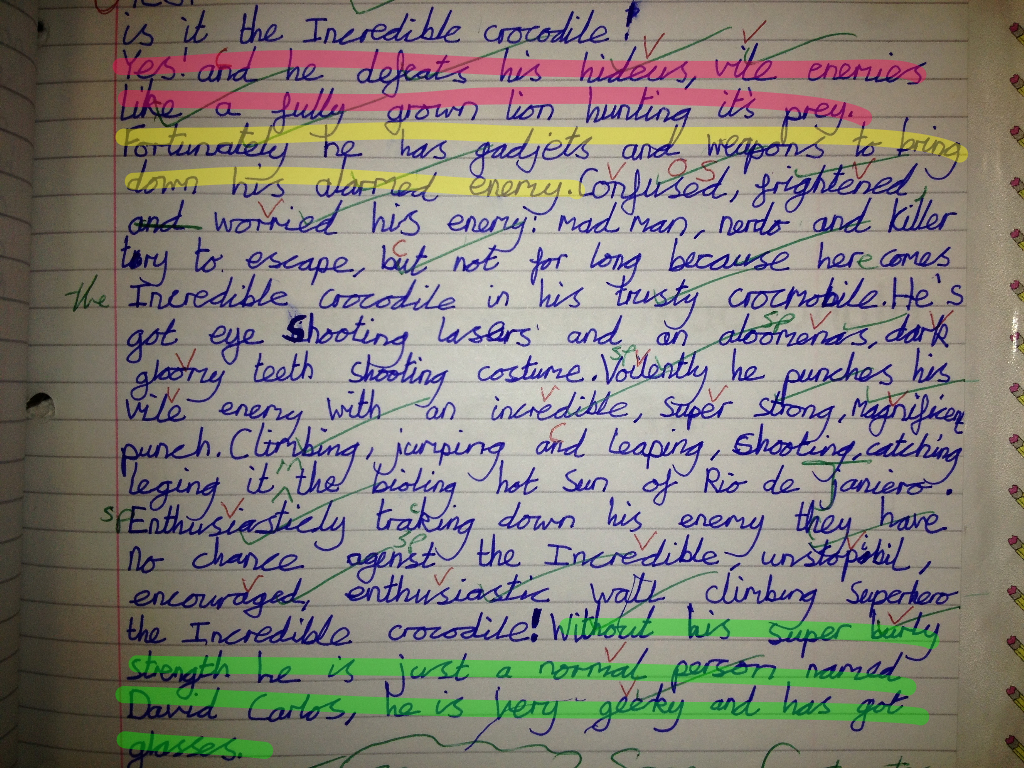 is it the Incredible crocodile!
Yes! and he defeats his hideus, vile enemies
like a fully grown lion hunting it's prey.
Fortunately he has gadjets and weapons to bring
down his alarmed enemy. Confused, frightened
and worried his enemy: mad man, nerdo and killer
tory to escape, but not for long because here comes
the Incredible crocodile in his trusty crocmobile. He's
got eye Shooting lasers and an aloomenars, dark
gloomy teeth shooting costume. Voilently he punches his
vile enemy with an incredible, super strong, Magnificent
punch. Climbing, jumping and leaping, Shooting, catching
leging it in the bioling hot Sun of Rio de Janiero.
sp Enthusiasticly traking down his enemy they have
no chance agenst the Incredible, unstopibil,
encouraged, enthusiastic wall climbing Superhero
the Incredible crocodile! Without his super burly
strength he is just a normal person named
David Carlos, he is very geeky and has got
glasses.